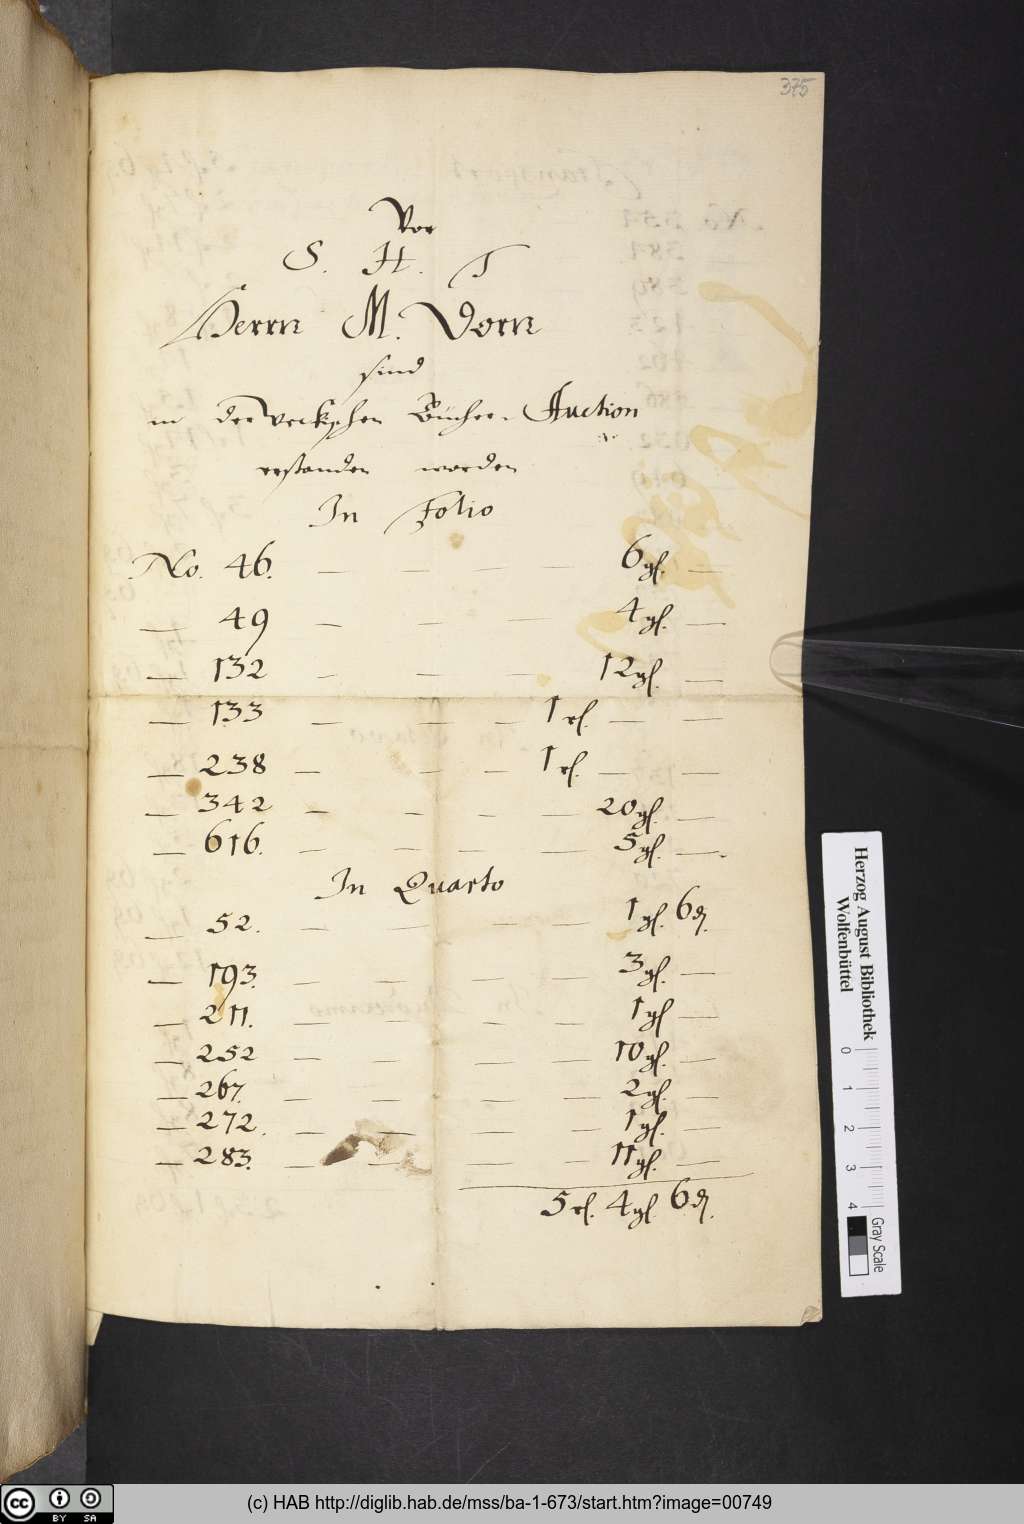 375
Vor
S. H. T
Herrn M. Dorn
sind
in der Bücher Auction
erstanden worden
In Folio
No. 46. — — — — 6 gl. —
— 49 — — — 4 gl. —
— 132 — — — 12 gl. —
— 133 — — — 1 rl. — —
— 238 — — — 1 rl. — —
— 342 — — — — 20 gl. —
— 616. — — — — 5 gl. —
In Quarto
— 52. — — — — 1 gl. 6 d.
— 193. — — — — 3 gl. —
— 211. — — — — 1 gl —
— 252 — — — — 10 gl. —
— 267. — — — — 2 gl. —
— 272. — — — — 1 gl. —
— 283. — — — — 11 gl. —
5 rl. 4 gl. 6 d.
Herzog August Bibliothek
Wolfenbüttel
0 1 2 3 4
Gray Scale
cc BY SA
(c) HAB http://diglib.hab.de/mss/ba-1-673/start.htm?image=00749